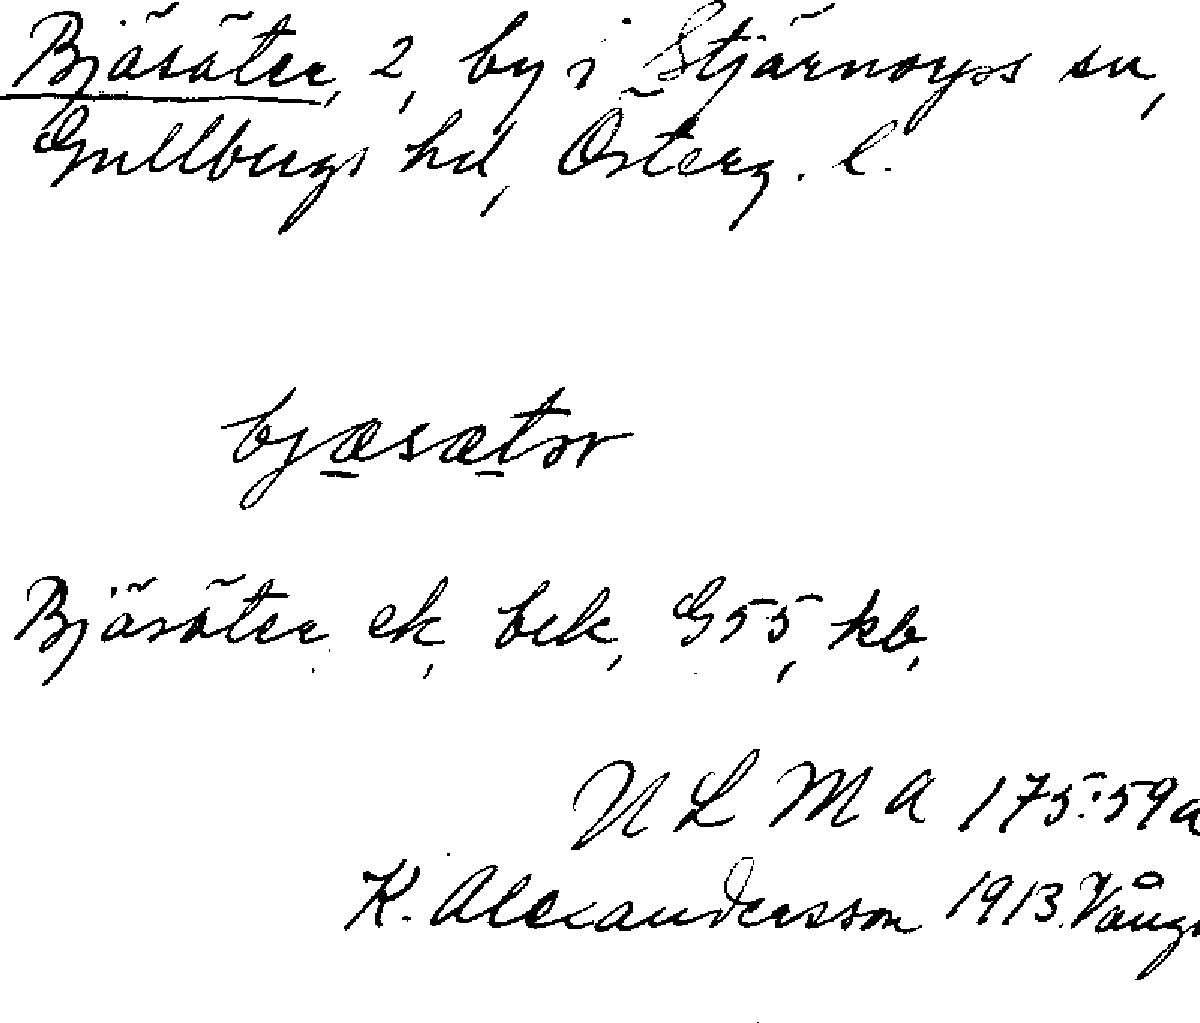 Bjäsäter, 2, by i Stjärnorps sn,
Gullbergs hd, Österg. l.
bjæsætər
Bjäsäter ek, bek, G55, kb,
ULMA 175:59a
K. Alexandersson 1913. Vånga